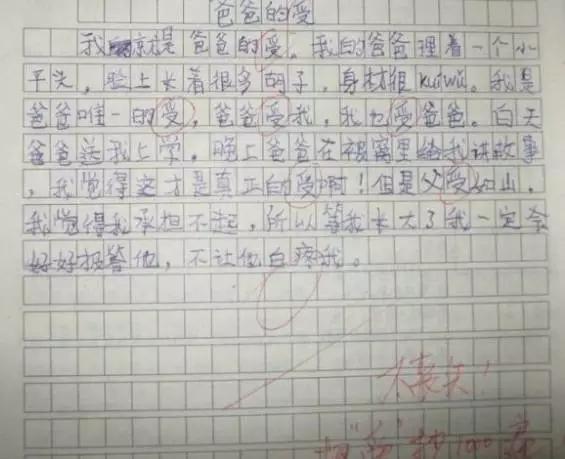 爸爸的受
我就是爸爸的受。我的爸爸理着一个小
平头，脸上长着很多胡子，身材很kuíwú。我是
爸爸唯一的受，爸爸受我，我也受爸爸。白天
爸爸送我上学。晚上爸爸在被窝里给我讲故事
，我觉得这才是真正的受啊！但是父受如山，
我觉得我承担不起，所以等我长大了我一定会
好好报答他，不让他白疼我。
大丧失！
抄100